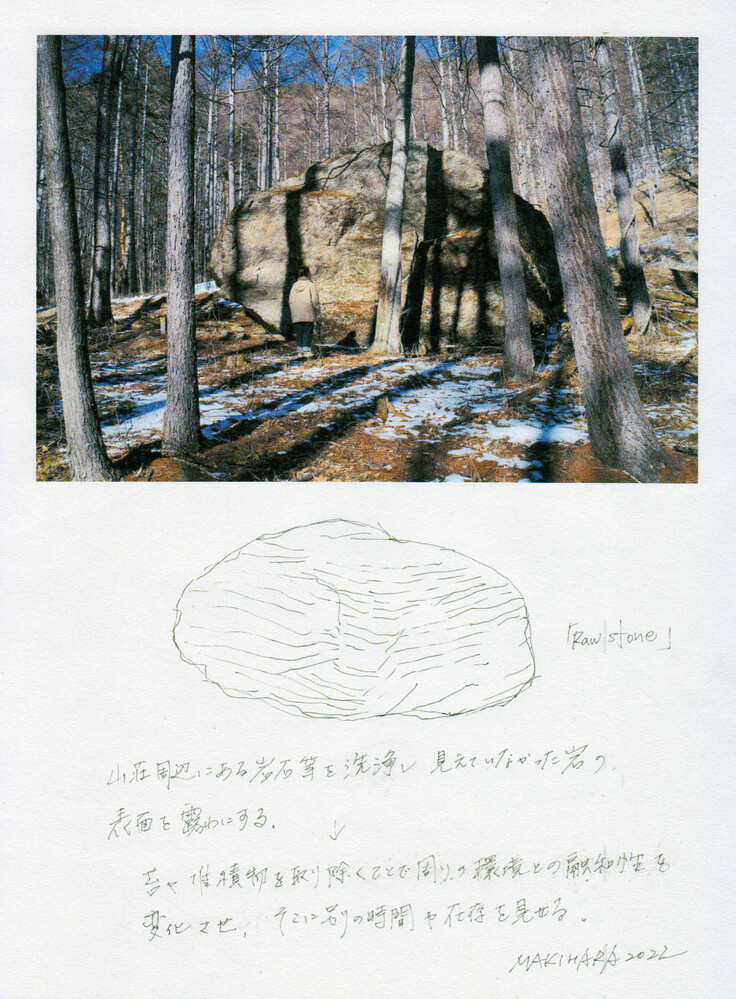 「Raw stone」
山荘周辺にある岩石等を洗浄し 見えていなかった岩の
表面を露わにする。
↓
苔や堆積物を取り除くことで周りの環境との融和性を
変化させ、そこに別の時間や在存を見せる。
MAKIHARA 2022